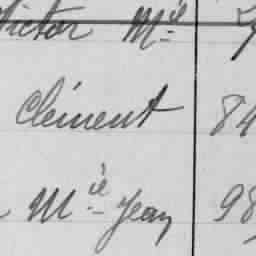 Victor Mie
Clément 84
Mie Jean 98